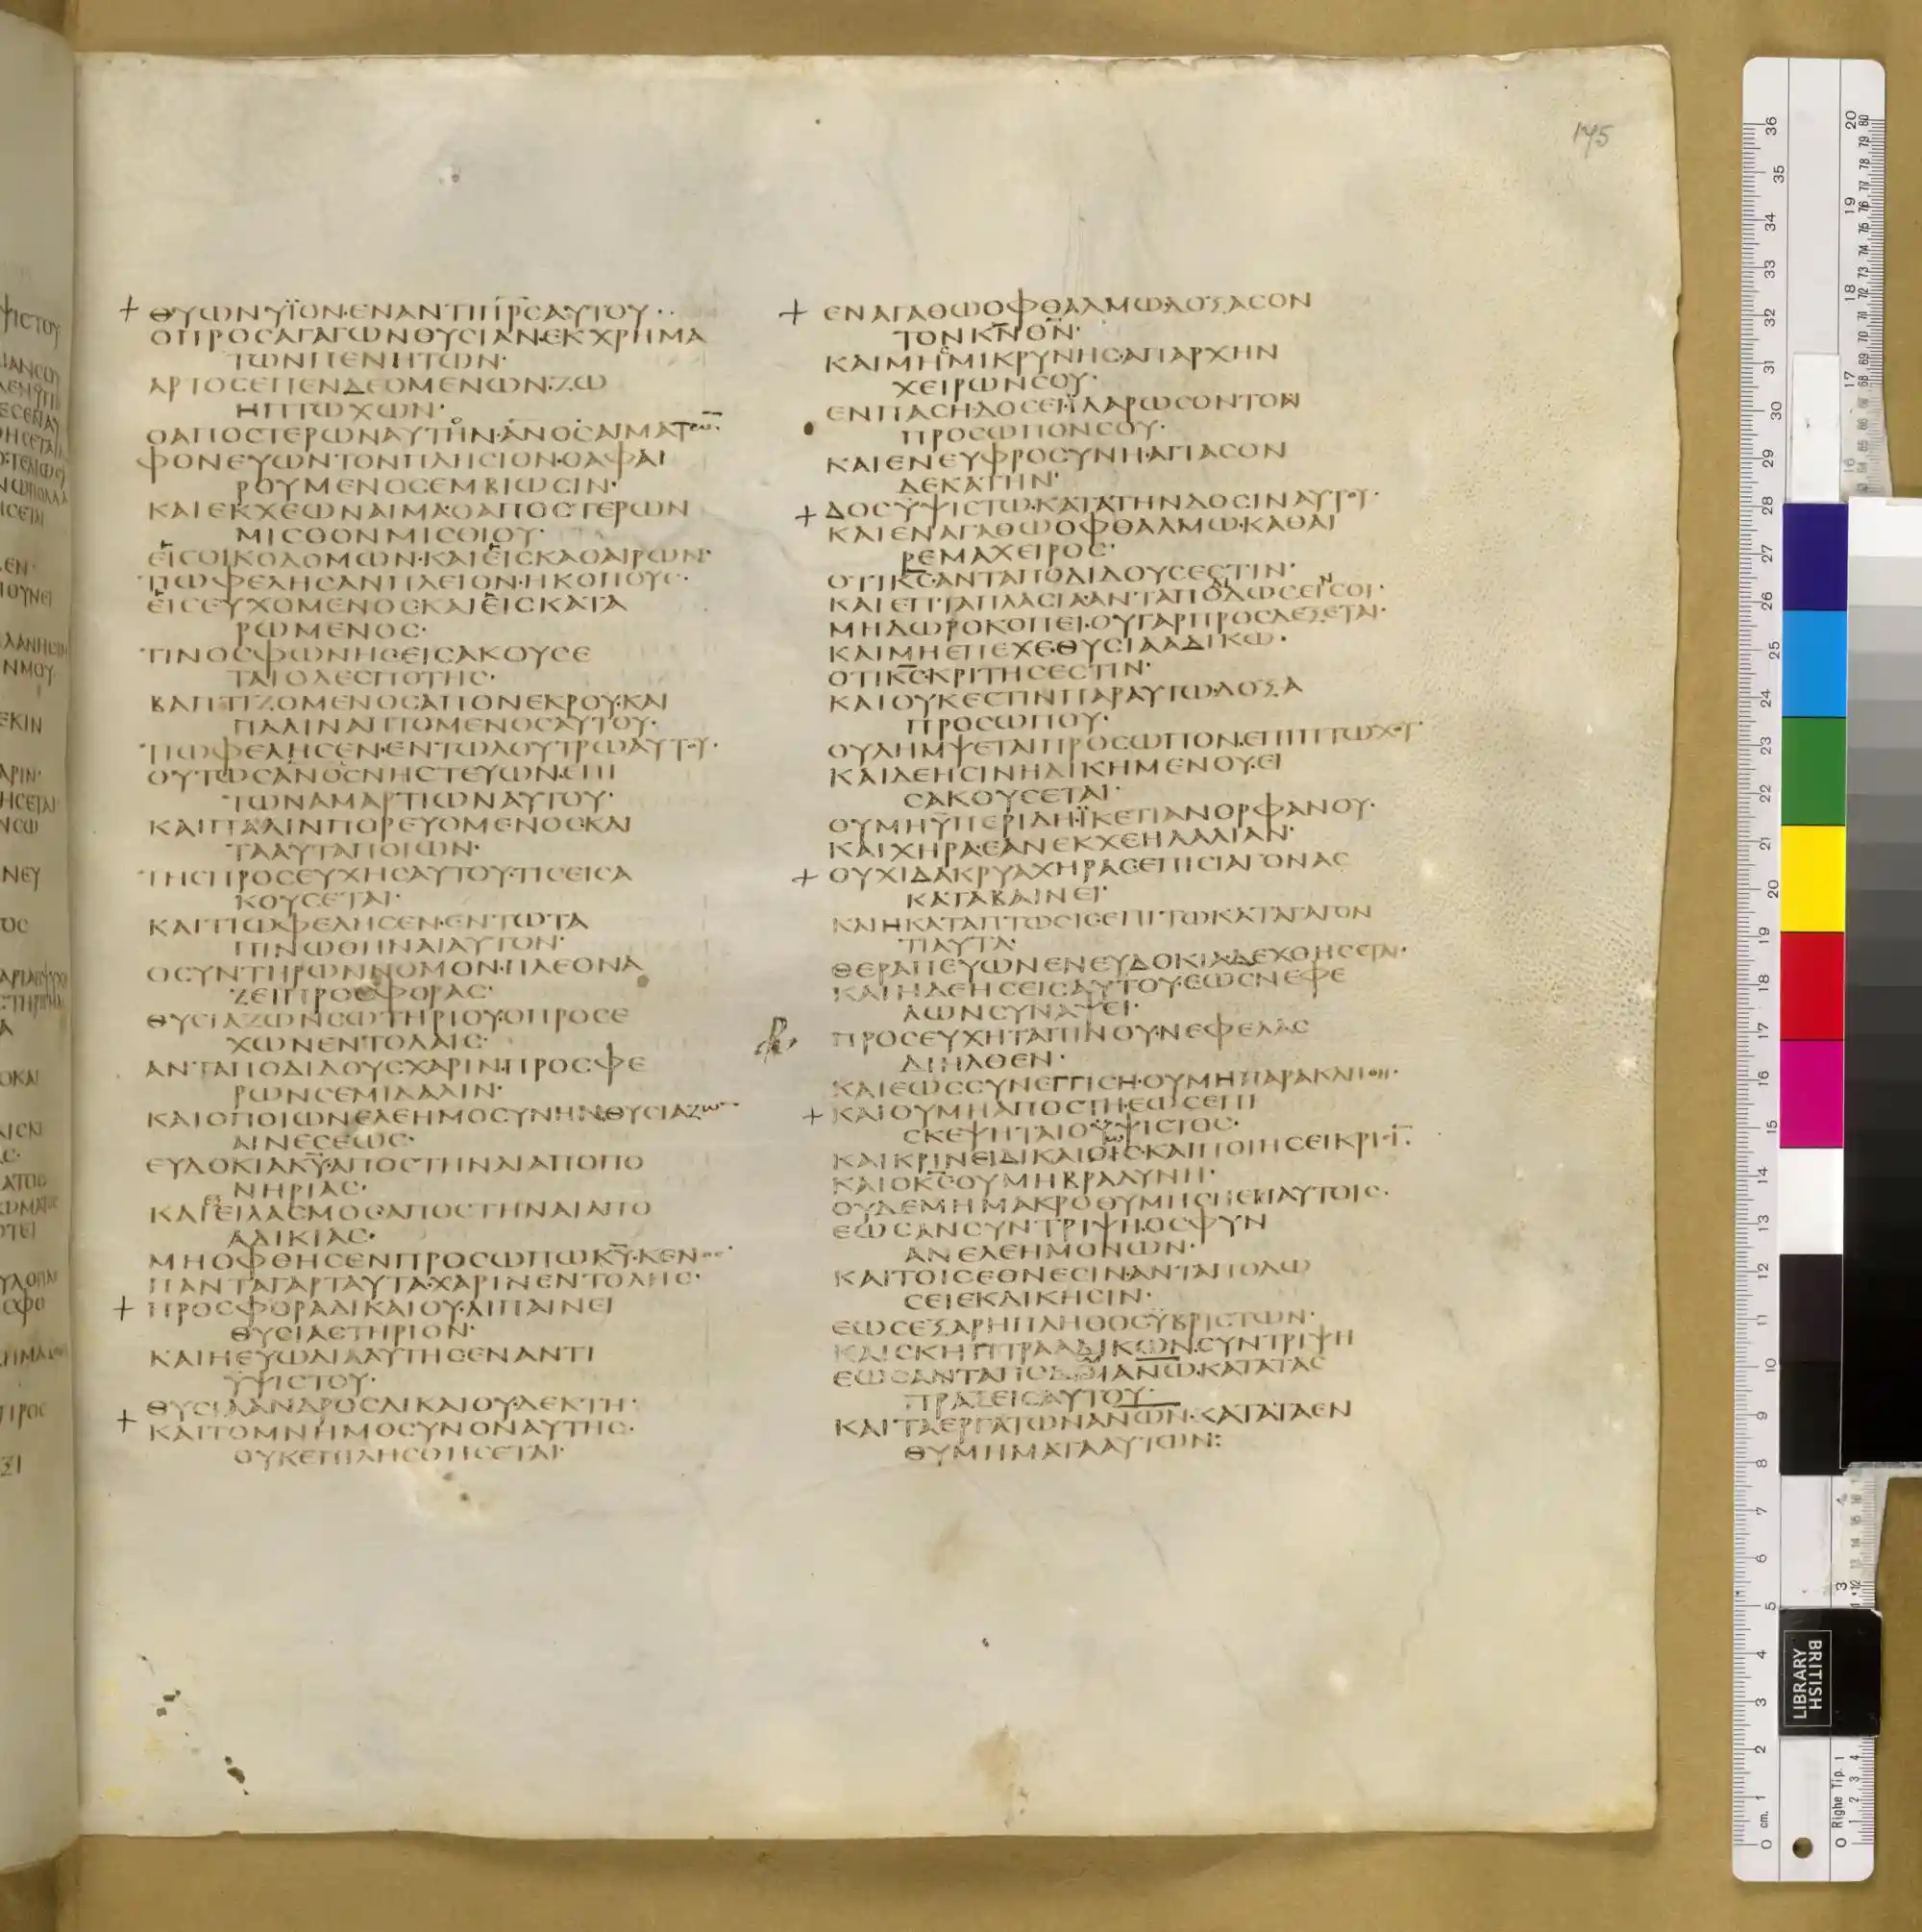 175
ΘΥΩΝΥΪΟΝ·ΕΝΑΝΤΙΠΡ̅Σ̅ΑΥΤΟΥ··
ΟΠΡΟΣΑΓΑΓΩΝΘΥΣΙΑΝ·ΕΚΧΡΗΜΑ
ΤΩΝΠΕΝΗΤΩΝ·
ΑΡΤΟΣΕΠΕΝΔΕΟΜΕΝΩΝ·ΖΩ
ΗΠΤΩΧΩΝ·
ΟΑΠΟΣΤΕΡΩΝΑΥΤΗΝ·ΑΝ̅Ο̅Σ̅ΑΙΜΑΤΩ̅
ΦΟΝΕΥΩΝΤΟΝΠΛΗΣΙΟΝ·ΟΑΦΑΙ
ΡΟΥΜΕΝΟΣΕΜΒΙΩΣΙΝ·
ΚΑΙΕΚΧΕΩΝΑΙΜΑ·ΟΑΠΟΣΤΕΡΩΝ
ΜΙΣΘΟΝΜΙΣΘΙΟΥ·
ΕΙΣΟΙΚΟΔΟΜΩΝ·ΚΑΙΕΙΣΚΑΘΑΙΡΩΝ·
ΤΙΩΦΕΛΗΣΑΝΠΛΕΙΟΝ·ΗΚΟΠΟΥΣ·
ΕΙΣΕΥΧΟΜΕΝΟΣΚΑΙΕΙΣΚΑΤΑ
ΡΩΜΕΝΟΣ·
ΤΙΝΟΣΦΩΝΗΣΕΙΣΑΚΟΥΣΕ
ΤΑΙΟΔΕΣΠΟΤΗΣ·
ΒΑΠΤΙΖΟΜΕΝΟΣΑΠΟΝΕΚΡΟΥ·ΚΑΙ
ΠΑΛΙΝΑΠΤΟΜΕΝΟΣΑΥΤΟΥ·
ΤΙΩΦΕΛΗΣΕΝ·ΕΝΤΩΛΟΥΤΡΩΑΥΤΟΥ·
ΟΥΤΩΣΑΝ̅Ο̅Σ̅ΝΗΣΤΕΥΩΝ·ΕΠΙ
ΤΩΝΑΜΑΡΤΙΩΝΑΥΤΟΥ·
ΚΑΙΠΑΛΙΝΠΟΡΕΥΟΜΕΝΟΣΚΑΙ
ΤΑΑΥΤΑΠΟΙΩΝ·
ΤΗΣΠΡΟΣΕΥΧΗΣΑΥΤΟΥ·ΤΙΣΕΙΣΑ
ΚΟΥΣΕΤΑΙ·
ΚΑΙΤΙΩΦΕΛΗΣΕΝ·ΕΝΤΩΤΑ
ΠΙΝΩΘΗΝΑΙΑΥΤΟΝ·
ΟΣΥΝΤΗΡΩΝΝΟΜΟΝ·ΠΛΕΟΝΑ
ΖΕΙΠΡΟΣΦΟΡΑΣ·
ΘΥΣΙΑΖΩΝΣΩΤΗΡΙΟΥ·ΟΠΡΟΣΕ
ΧΩΝΕΝΤΟΛΑΙΣ·
ΑΝΤΑΠΟΔΙΔΟΥΣΧΑΡΙΝ·ΠΡΟΣΦΕ
ΡΩΝΣΕΜΙΔΑΛΙΝ·
ΚΑΙΟΠΟΙΩΝΕΛΕΗΜΟΣΥΝΗΝ·ΘΥΣΙΑΖΩ̅
ΑΙΝΕΣΕΩΣ·
ΕΥΔΟΚΙΑΚ̅Υ̅·ΑΠΟΣΤΗΝΑΙΑΠΟΠΟ
ΝΗΡΙΑΣ·
ΚΑΙΕΞΕΙΛΑΣΜΟΣ·ΑΠΟΣΤΗΝΑΙΑΠΟ
ΑΔΙΚΙΑΣ·
ΜΗΟΦΘΗΣΕΝΠΡΟΣΩΠΩΚ̅Υ̅·ΚΕΝΟΣ·
ΠΑΝΤΑΓΑΡΤΑΥΤΑ·ΧΑΡΙΝΕΝΤΟΛΗΣ·
ΠΡΟΣΦΟΡΑΔΙΚΑΙΟΥ·ΛΙΠΑΙΝΕΙ
ΘΥΣΙΑΣΤΗΡΙΟΝ·
ΚΑΙΗΕΥΩΔΙΑΑΥΤΗΣΕΝΑΝΤΙ
ΫΨΙΣΤΟΥ·
ΘΥΣΙΑΑΝΔΡΟΣΔΙΚΑΙΟΥ·ΔΕΚΤΗ·
ΚΑΙΤΟΜΝΗΜΟΣΥΝΟΝΑΥΤΗΣ·
ΟΥΚΕΠΙΛΗΣΘΗΣΕΤΑΙ·
ΕΝΑΓΑΘΩΟΦΘΑΛΜΩ·ΔΟΞΑΣΟΝ
ΤΟΝΚ̅Ν̅Θ̅Ν̅·
ΚΑΙΜΗΣΜΙΚΡΥΝΗΣ·ΑΠΑΡΧΗΝ
ΧΕΙΡΩΝΣΟΥ·
ΕΝΠΑΣΗΔΟΣΕΙ·ΪΛΑΡΩΣΟΝΤΟΝ
ΠΡΟΣΩΠΟΝΣΟΥ·
ΚΑΙΕΝΕΥΦΡΟΣΥΝΗ·ΑΓΙΑΣΟΝ
ΔΕΚΑΤΗΝ·
ΔΟΣΫΨΙΣΤΩ·ΚΑΤΑΤΗΝΔΟΣΙΝΑΥΤΟΥ·
ΚΑΙΕΝΑΓΑΘΩΟΦΘΑΛΜΩ·ΚΑΘΑΙ
ΡΕΜΑΧΕΙΡΟΣ·
ΟΤΙΚ̅Σ̅·ΑΝΤΑΠΟΔΙΔΟΥΣΕΣΤΙΝ·
ΚΑΙΕΠΤΑΠΛΑΣΙΑ·ΑΝΤΑΠΟΔΩΣΕΙΣΟΙ·
ΜΗΔΩΡΟΚΟΠΕΙ·ΟΥΓΑΡΠΡΟΣΔΕΞΕΤΑΙ·
ΚΑΙΜΗΕΠΕΧΕ·ΘΥΣΙΑΑΔΙΚΩ·
ΟΤΙΚ̅Σ̅·ΚΡΙΤΗΣΕΣΤΙΝ·
ΚΑΙΟΥΚΕΣΤΙΝΠΑΡΑΥΤΩ·ΔΟΞΑ
ΠΡΟΣΩΠΟΥ·
ΟΥΛΗΜΨΕΤΑΙΠΡΟΣΩΠΟΝ·ΕΠΙΠΤΩΧΟΥ
ΚΑΙΔΕΗΣΙΝΗΔΙΚΗΜΕΝΟΥ·ΕΙ
ΣΑΚΟΥΣΕΤΑΙ·
ΟΥΜΗΫΠΕΡΙΔΗ·ΪΚΕΤΙΑΝΟΡΦΑΝΟΥ·
ΚΑΙΧΗΡΑ·ΕΑΝΕΚΧΕΗΛΑΛΙΑΝ·
ΟΥΧΙΔΑΚΡΥΑΧΗΡΑΣΕΠΙΣΙΑΓΟΝΑΣ
ΚΑΤΑΒΑΙΝΕΙ·
ΚΑΙΗΚΑΤΑΠΤΩΣΙΣΕΠΙΤΩΚΑΤΑΓΑΓΟΝ
ΤΙΑΥΤΑ·
ΘΕΡΑΠΕΥΩΝΕΝΕΥΔΟΚΙΑΔΕΧΘΗΣΕΤΑΙ·
ΚΑΙΗΔΕΗΣΕΙΣΑΥΤΟΥ·ΕΩΣΝΕΦΕ
ΛΩΝΣΥΝΑΨΕΙ·
ΠΡΟΣΕΥΧΗΤΑΠΙΝΟΥ·ΝΕΦΕΛΑΣ
ΔΙΗΛΘΕΝ·
ΚΑΙΕΩΣΣΥΝΕΓΓΙΣΗ·ΟΥΜΗΠΑΡΑΚΛΗΘΗ·
ΚΑΙΟΥΜΗΑΠΟΣΤΗ·ΕΩΣΕΠΙ
ΣΚΕΨΗΤΑΙΟΫΨΙΣΤΟΣ·
ΚΑΙΚΡΙΝΕΙΔΙΚΑΙΟΙΣ·ΚΑΙΠΟΙΗΣΕΙΚΡΙΣΙ̅·
ΚΑΙΟΚ̅Σ̅·ΟΥΜΗΒΡΑΔΥΝΗ·
ΟΥΔΕΜΗΜΑΚΡΟΘΥΜΗΣΗΕΠΑΥΤΟΙΣ·
ΕΩΣΑΝΣΥΝΤΡΙΨΗ·ΟΣΦΥΝ
ΑΝΕΛΕΗΜΟΝΩΝ·
ΚΑΙΤΟΙΣΕΘΝΕΣΙΝ·ΑΝΤΑΠΟΔΩ
ΣΕΙΕΚΔΙΚΗΣΙΝ·
ΕΩΣΕΞΑΡΗΠΛΗΘΟΣΫΒΡΙΣΤΩΝ·
ΚΑΙΣΚΗΠΤΡΑΑΔΙΚΩΝ·ΣΥΝΤΡΙΨΗ
ΕΩΣΑΝΤΑΠΟΔΩΑΝ̅Ω̅·ΚΑΤΑΤΑΣ
ΠΡΑΞΕΙΣΑΥΤΟΥ·
ΚΑΙΤΑΕΡΓΑΤΩΝΑΝ̅Ω̅Ν̅·ΚΑΤΑΤΑΕΝ
ΘΥΜΗΜΑΤΑΑΥΤΩΝ:
BRITISH
LIBRARY